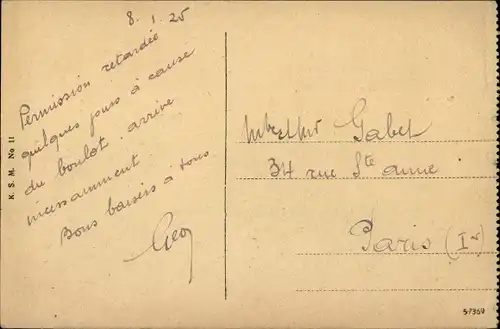 8. 1. 25
Permission retardée
quelques jours à cause
du boulot. arrive
incessamment
Bons baisers à tous
K. S. M. No 11
Gabet
34 rue Ste anne
Paris (Ier)
57360